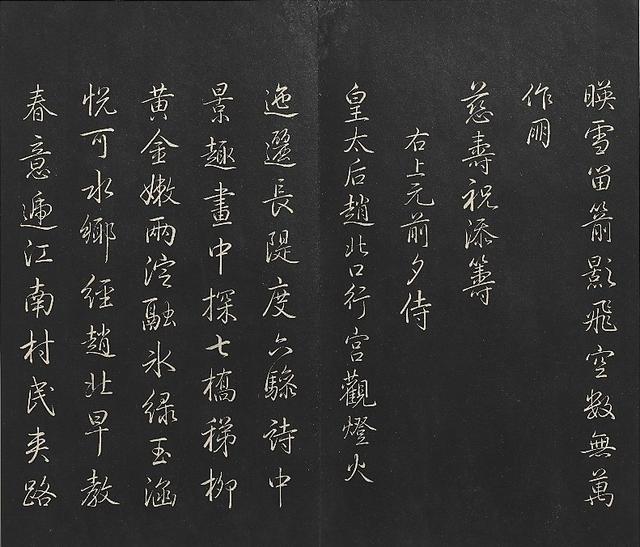 暎雪留箭影飛空數無萬
作朋
慈壽祝添籌
右上元前夕侍
皇太后趙北口行宮觀燈火
迤邐長隄度六驂詩中
景趣畫中探七橋稊柳
黃金嫩兩淀融氷綠玉涵
悦可水鄉經趙北早教
春意遞江南村民夹路